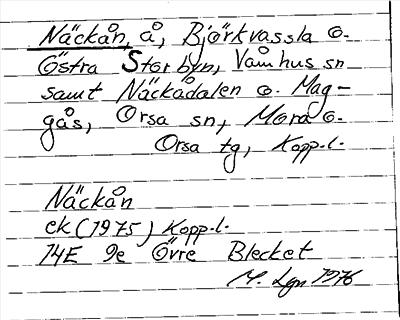 Näckån, å, Björkvassla o.
Östra Storbyn, Våmhus sn
samt Näckådalen o. Mag-
gås, Orsa sn, Mora o.
Orsa tg, Kopp.l.
Näckån
ek (1975) Kopp.l.
14E 9e Övre Blecket
M. Lgn 1976